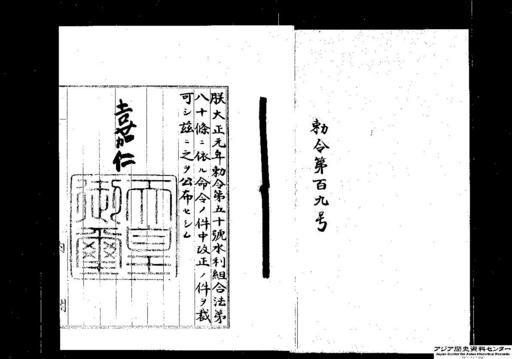 勅令第百九号
朕大正元年勅令第五十號水利組合法第
八十條ニ依ル命令ノ件中改正ノ件ヲ裁
可シ茲ニ之ヲ公布セシム
嘉仁
天皇
御璽
内閣
アジア歴史資料センター
Japan Center for Asian Historical Records